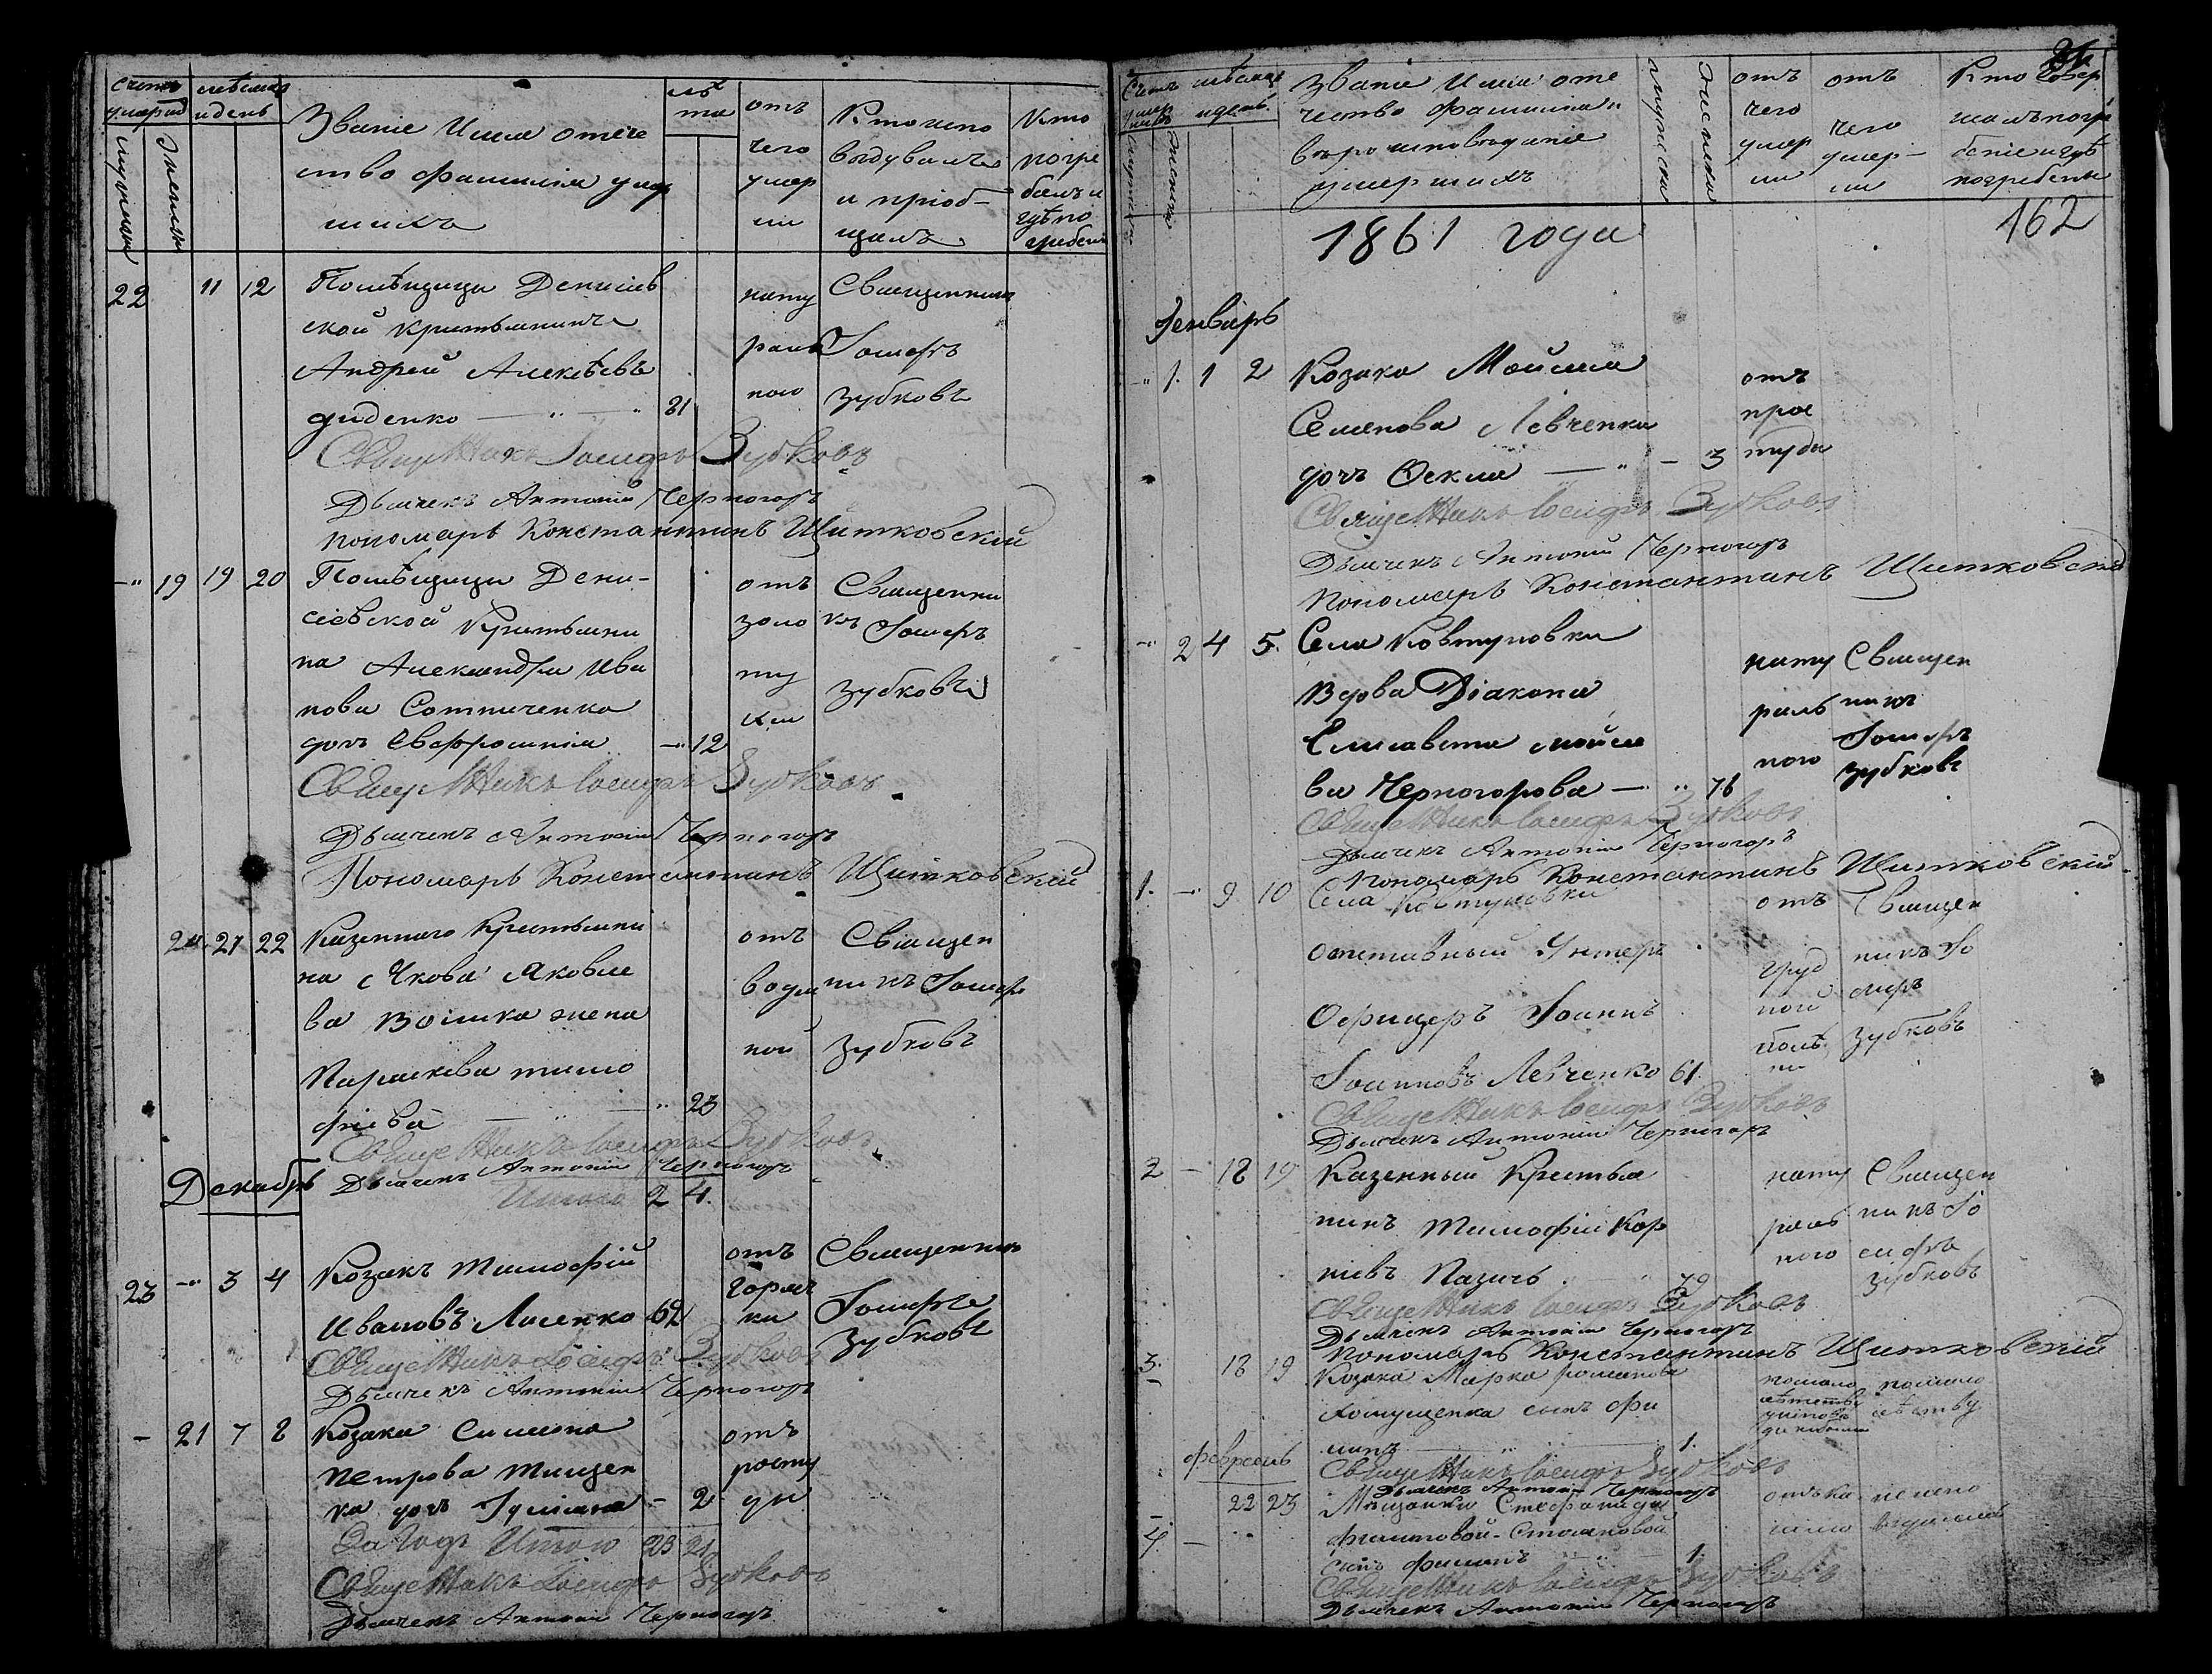 Счетъ умерш
мѣсяц и день
Званіе Имя отече
ство фамилія умер
шихъ
лѣ
та
отъ
чего
умер
ли
Кто испо
вѣдувалъ
и пріоб-
щалъ
Кто
погре
балъ и
гдѣ по
гребены
22 11 12 Помѣщицы Денисіев
ской крестьянинъ
Андрей Алексѣевъ
Диденко — " — " 81
нату
раль
ного
Священникъ
Іосифъ
Зубковъ
Священникъ Іосифъ Зубковъ
Дьячекъ Антоній Черногоръ
пономарь Константинъ Щитковскій
—" 19 19 20 Помѣщицы Дени-
сіевской Крестьяни
на Александра Ива
нова Сотниченка
дочь Евфросинія —" 12
отъ
золо
ту
хи
Священни
къ Іосифъ
Зубковъ
Священникъ Іосифъ Зубковъ
Дьячекъ Антоній Черногоръ
Пономарь Константинъ Щитковскій
20 21 22 Казенного Крестьяни
на Якова Яковле
ва Вошка жена
Параскева тимо
фіева — " — " 23
отъ
водя
ной
Священ
никъ Іосифъ
Зубковъ
Священникъ Іосифъ Зубковъ
Дьячекъ Антоній Черногоръ
Декабрь
Итого 2 4.
23 —" 3 4 Козакъ Тимофій
Ивановъ Лисенко 62
отъ
горяч
ки
Священникъ
Іосифъ
Зубковъ
Священникъ Іосифъ Зубковъ
Дьячекъ Антоній Черногоръ
— 21 7 8 Козака Симеона
Петрова Тищен
ка дочь Іуліана — 2
отъ
За годъ Итого 23 21
Священникъ Іосифъ Зубковъ
Дьячекъ Антоній Черногоръ
Счетъ умер
шихъ
мѣсяцъ
и день
Званіе Имя оте
чество фамилія и
вѣроисповѣданіе
умершихъ
мужеска
женска
отъ
чего
умер
ли
отъ
чего
умер-
ли
Кто совер
шалъ погр
бение и гдѣ
погребены
1861 года
162
Генварь
—" 1. 1 2 Козака Мойсея
Семенова Левченка
дочь Фекла — " — 3
отъ
прос
туды
Священникъ Іосифъ Зубковъ
Дьячекъ Антоній Черногоръ
Пономарь Константинъ Щитковскій
—" 2 4 5. Села Ковтуновки
Вдова Діакона
Елисавета Мойсе
ва Черногорова — " 76
нату
раль
ного
Священ
никъ
Іосифъ
Зубковъ
Священникъ Іосифъ Зубковъ
Дьячекъ Антоній Черногоръ
Пономарь Константинъ Щитковскій
1. —" 9. 10 Села Ковтуновки
отставный Унтеръ
Офицеръ Іоаннъ
Іоанновъ Левченко 61.
отъ
груд
ной
болѣ
зни
Священ
никъ Іо
сифъ
Зубковъ
Священникъ Іосифъ Зубковъ
Дьячекъ Антоній Черногоръ
2 — 18 19 Казенный Крестья
нинъ Тимофій Кор
ніевъ Пазичъ 79
нату
раль
ного
Священ
никъ Іо
сифъ
Зубковъ
Священникъ Іосифъ Зубковъ
Дьячекъ Антоній Черногоръ
Пономарь Константинъ Щитковскій
3. 18 19 Козака Марка романова
сынъ Фи
липъ — " — 1.
помало
лѣтству
помало
лѣтству
Февраль
Священникъ Іосифъ Зубковъ
Дьячекъ Антоній Черногоръ
4 — 22 23 Мѣщанки Стефаниды
сынъ — " — 1.
отъ ка
шлю
Священникъ Іосифъ Зубковъ
Дьячекъ Антоній Черногоръ